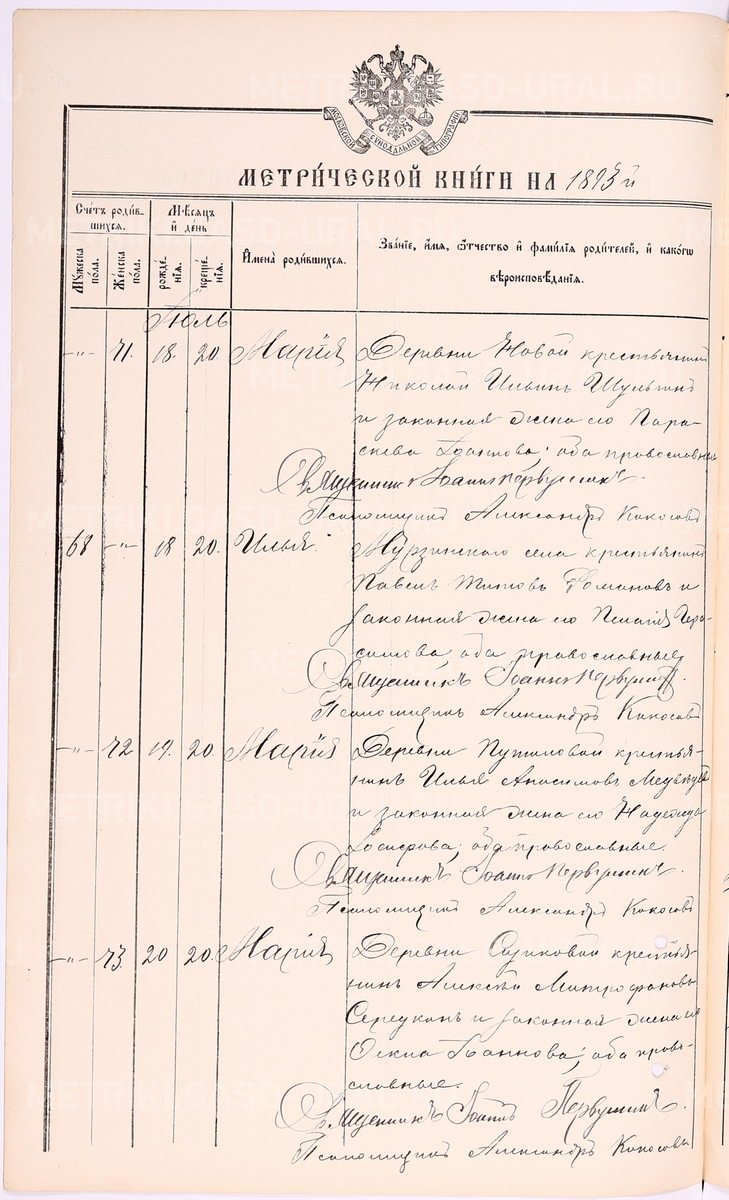 МОСКОВСКОЙ СѴНОДАЛЬНОЙ ТИПОГРАФІИ
МЕТРИ́ЧЕСКОЙ КНИ́ГИ НА 1893 й
Сче́тъ роди́вшихся.
Мꙋ́жеска по́ла.
Же́нска по́ла.
Мѣ́сяцъ и҆ де́нь
рожде́нїѧ.
креще́нїѧ.
И҆мена̀ роди́вшихся.
Зва́нїе, и҆́мѧ, ѻ҆́тчество и҆ фами́лїѧ роди́телей, и҆ како́гѡ вѣроисповѣ́данїѧ.
Іюль
—"— 71. 18. 20. Марія Деревни Новой крестьянинъ
Николай Ильинъ Шульгинъ
и законная жена его Пара-
скева Іоаннова; оба православные
Священникъ Іоаннъ Первушинъ.
Псаломщикъ Александръ Кокосовъ
68 —"— 18 20. Илья. Мурзинскаго села крестьянинъ
Павелъ Титовъ Романовъ и
законная жена его Пелагія Гера-
симова, оба православные
Священникъ Іоаннъ Первушинъ.
Псаломщикъ Александръ Кокосовъ
—"— 72 19. 20 Марія Деревни Путиловой крестья-
нинъ Илья Анисимовъ Медвѣдевъ
и законная жена его Надежда
Іосифова; оба православные.
Священникъ Іоаннъ Первушинъ.
Псаломщикъ Александръ Кокосовъ
—"— 73. 20 20. Марія Деревни Сизиковой крестья-
нинъ Алексѣй Митрофановъ
Середкинъ и законная жена его
Іоаннова; оба право-
славные.
Священникъ Іоаннъ Первушинъ.
Псаломщикъ Александръ Кокосовъ
METRIKI.GASO-URAL.RU